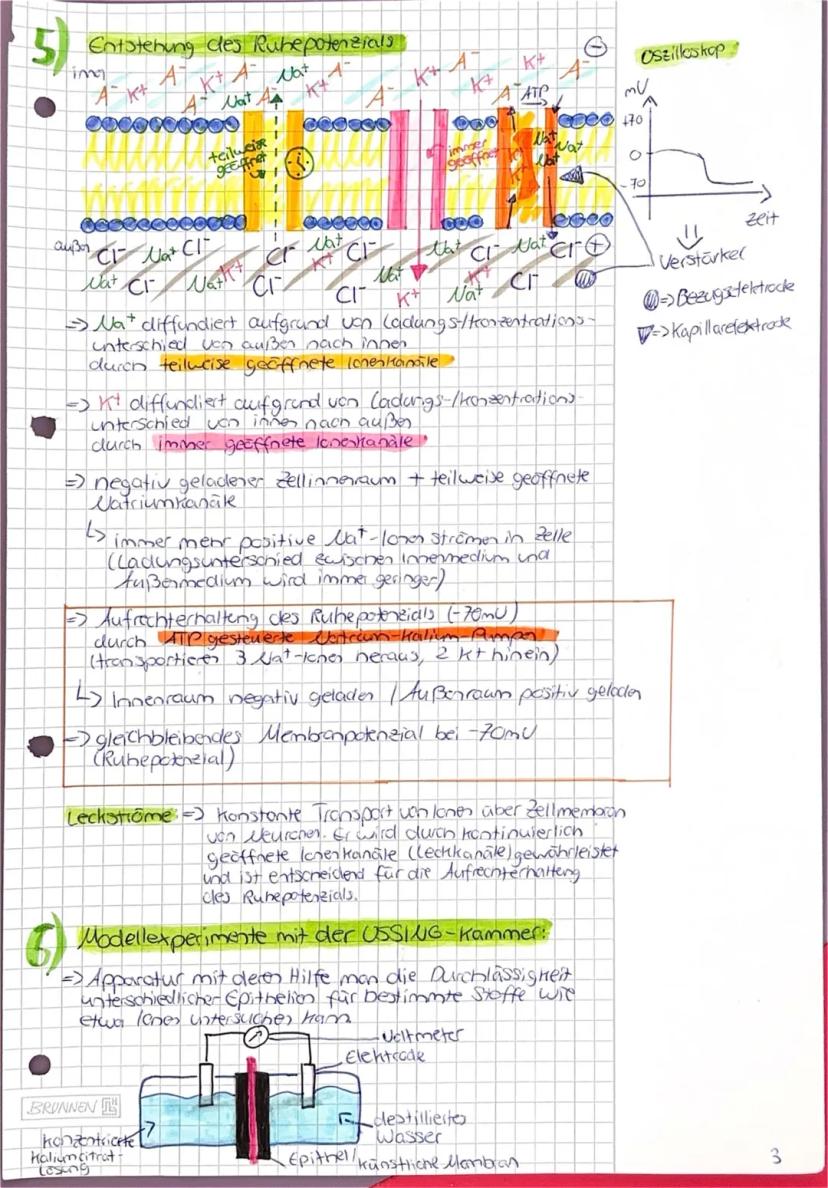 5) Entstehung des Ruhepotenzials
Oszilloskop
innen
A⁻ K⁺ A⁻ K⁺ A⁻ Na⁺ A⁻ K⁺ A⁻ K⁺ A⁻ ⊖
A⁻ Na⁺ A⁻ K⁺ A⁻ K⁺ A⁻ ATP
mV
+70
0
-70
Zeit
teilweise geöffnet
immer geöffnet
K⁺
K⁺
Na⁺
Na⁺
Na⁺
außen Cl⁻ Na⁺ Cl⁻ Cl⁻ Na⁺ Cl⁻ Na⁺ Cl⁻ Na⁺ Cl⁻ ⊕
Na⁺ Cl⁻ Na⁺ K⁺ Cl⁻ K⁺ Cl⁻ Na⁺ K⁺ Na⁺ K⁺ Cl⁻
Verstärker
=> Bezugselektrode
=> Kapillarelektrode
=> Na⁺ diffundiert aufgrund von Ladungs-/Konzentrations-
unterschied von außen nach innen
durch teilweise geöffnete Ionenkanäle
=> K⁺ diffundiert aufgrund von Ladungs-/Konzentrations-
unterschied von innen nach außen
durch immer geöffnete Ionenkanäle
=> negativ geladener Zellinnenraum + teilweise geöffnete
Natriumkanäle
↳ immer mehr positive Na⁺-Ionen strömen in Zelle
(Ladungsunterschied zwischen Innenmedium und
Außenmedium wird immer geringer)
=> Aufrechterhaltung des Ruhepotenzials (-70mV)
durch ATP gesteuerte Natrium-Kalium-Pumpen
(transportieren 3 Na⁺-Ionen heraus, 2 K+ hinein)
↳ Innenraum negativ geladen / Außenraum positiv geladen
=> gleichbleibendes Membranpotenzial bei -70mV
(Ruhepotenzial)
Leckströme: => Konstante Transport von Ionen über Zellmembran
von Neuronen. Er wird durch kontinuierlich
geöffnete Ionenkanäle (Leckkanäle) gewährleistet
und ist entscheidend für die Aufrechterhaltung
des Ruhepotenzials.
6) Modellexperimente mit der USSING-Kammer:
=> Apparatur mit deren Hilfe man die Durchlässigkeit
unterschiedlicher Epithelien für bestimmte Stoffe wie
etwa Ionen untersuchen kann
Voltmeter
Elektrode
BRUNNEN
konzentrierte
Kaliumcitrat-
Lösung
destilliertes
Wasser
Epithel/künstliche Membran
3